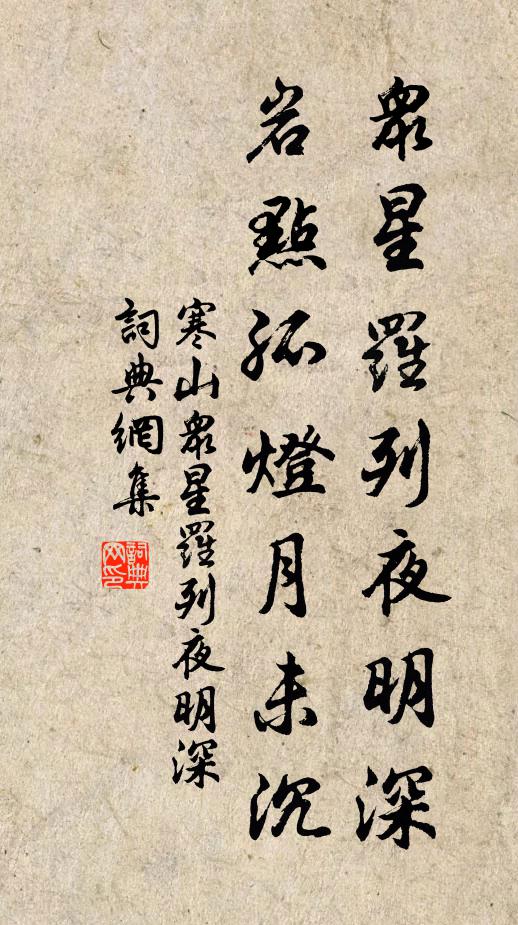 眾星羅列夜明深
岩點孤燈月未沉
寒山眾星羅列夜明深
詞典網集
詞典網印